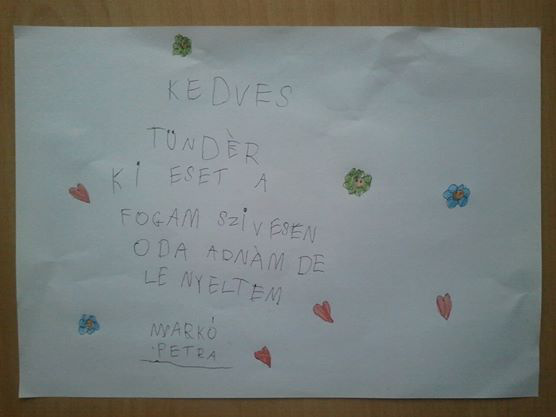 KEDVES
TÜNDÈR
Ki ESET A
FOGAM SZiVESEN
ODA ADNÀM DE
LE NYELTEM
MARKÓ
PETRA